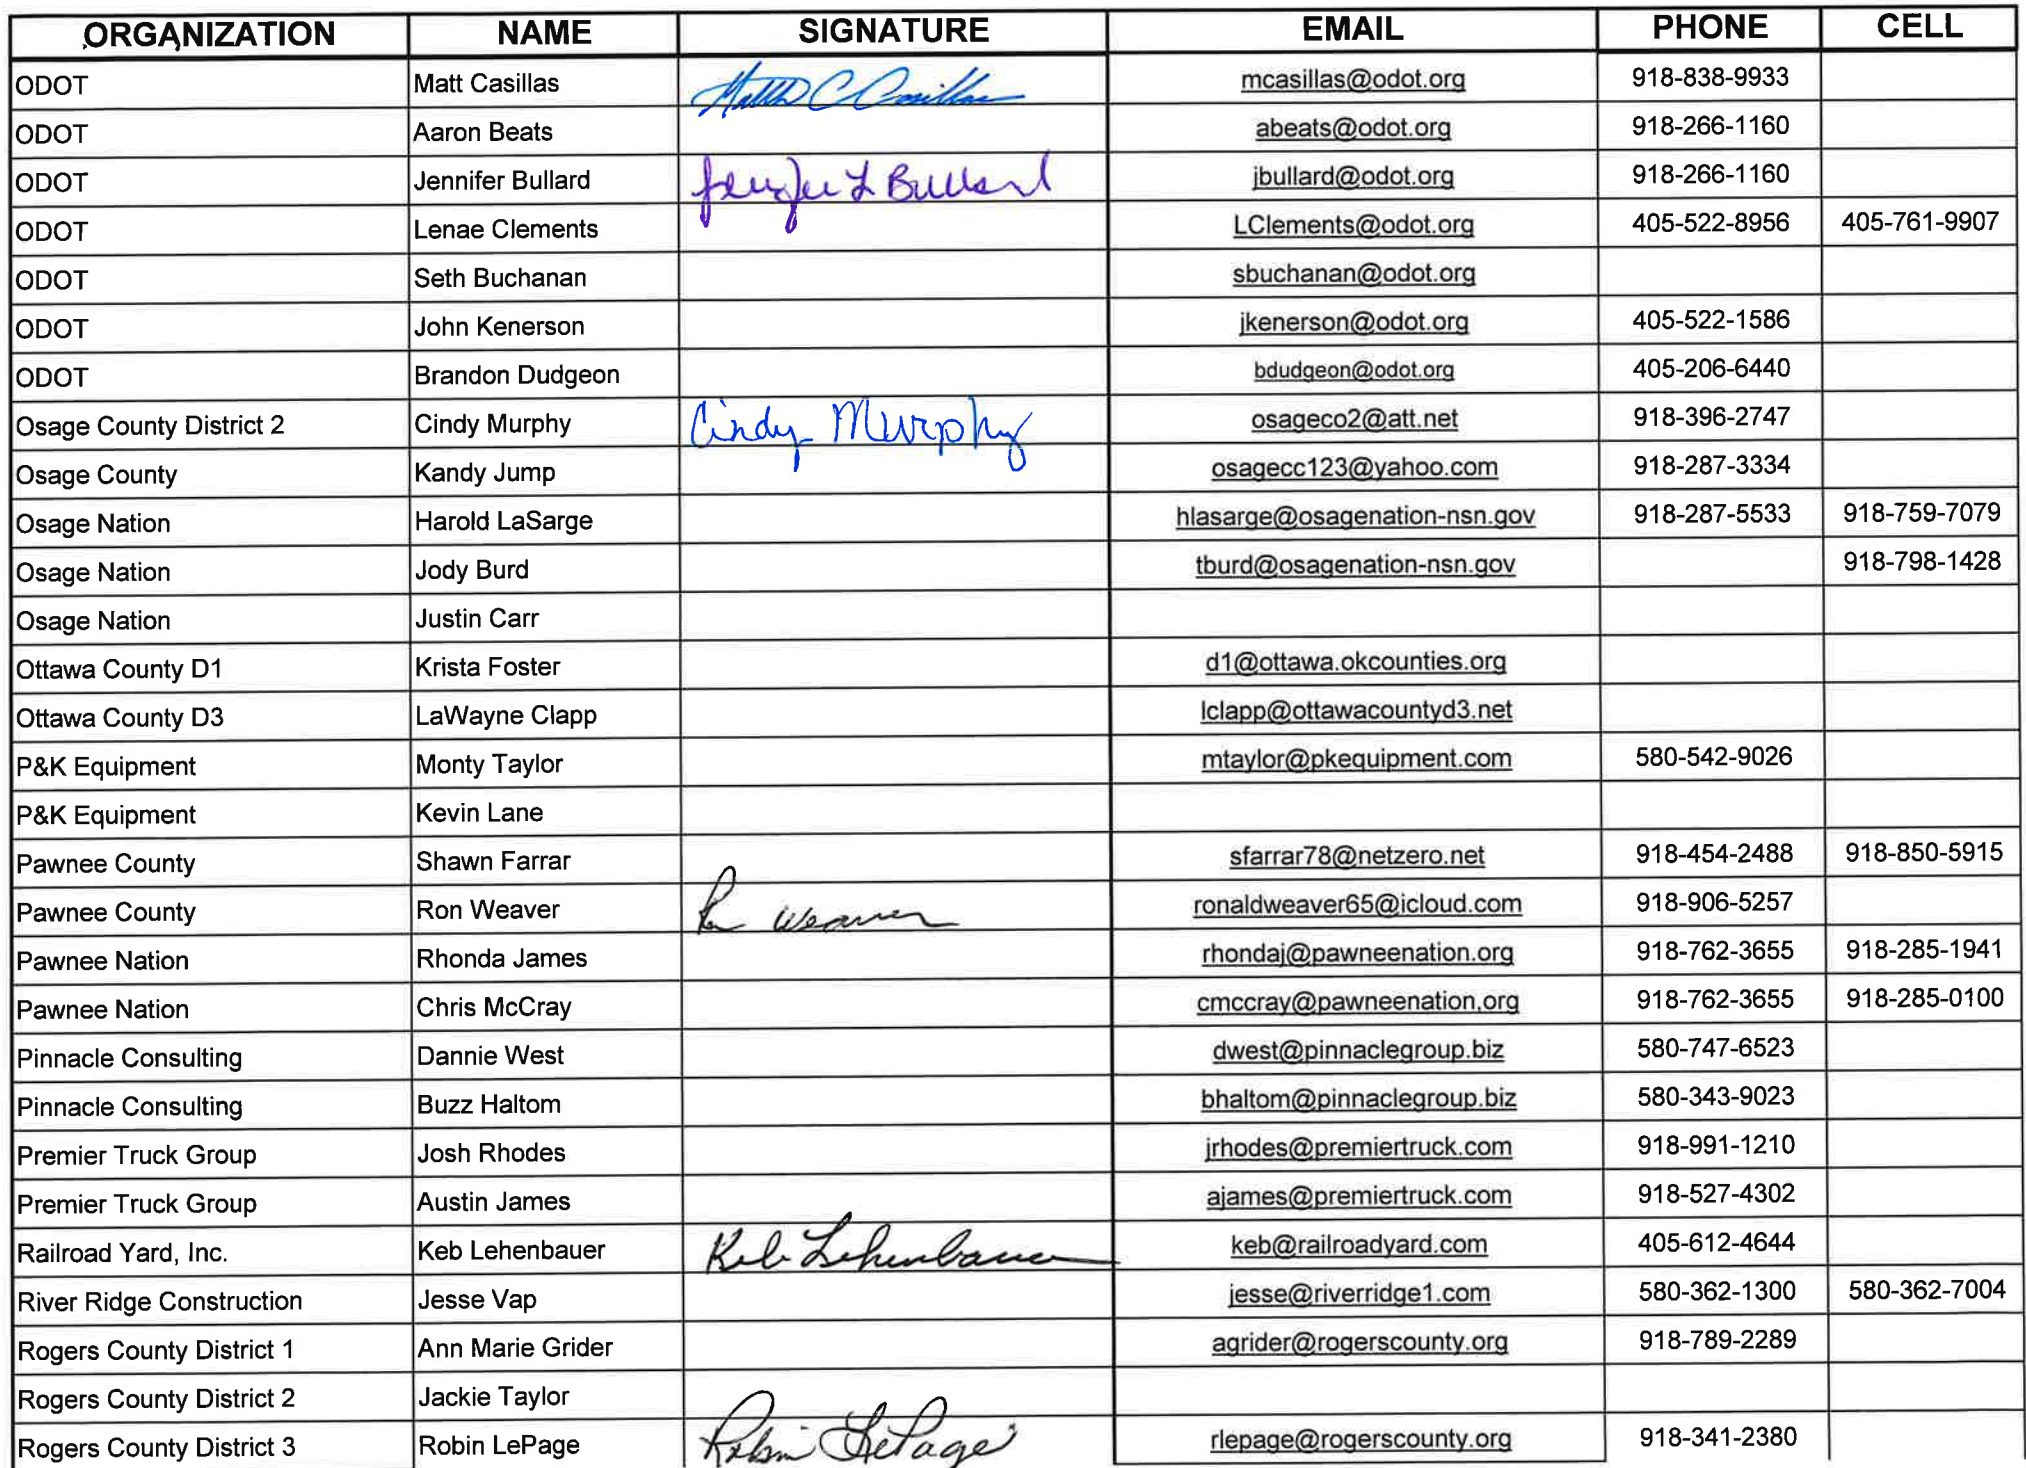 ORGANIZATION NAME SIGNATURE EMAIL PHONE CELL
ODOT Matt Casillas Matth C Casillas mcasillas@odot.org 918-838-9933
ODOT Aaron Beats abeats@odot.org 918-266-1160
ODOT Jennifer Bullard Jennifer L Bullard jbullard@odot.org 918-266-1160
ODOT Lenae Clements LClements@odot.org 405-522-8956 405-761-9907
ODOT Seth Buchanan sbuchanan@odot.org
ODOT John Kenerson jkenerson@odot.org 405-522-1586
ODOT Brandon Dudgeon bdudgeon@odot.org 405-206-6440
Osage County District 2 Cindy Murphy Cindy Murphy osageco2@att.net 918-396-2747
Osage County Kandy Jump osagecc123@yahoo.com 918-287-3334
Osage Nation Harold LaSarge hlasarge@osagenation-nsn.gov 918-287-5533 918-759-7079
Osage Nation Jody Burd tburd@osagenation-nsn.gov 918-798-1428
Osage Nation Justin Carr
Ottawa County D1 Krista Foster d1@ottawa.okcounties.org
Ottawa County D3 LaWayne Clapp lclapp@ottawacountyd3.net
P&K Equipment Monty Taylor mtaylor@pkequipment.com 580-542-9026
P&K Equipment Kevin Lane
Pawnee County Shawn Farrar sfarrar78@netzero.net 918-454-2488 918-850-5915
Pawnee County Ron Weaver Ron Weaver ronaldweaver65@icloud.com 918-906-5257
Pawnee Nation Rhonda James rhondaj@pawneenation.org 918-762-3655 918-285-1941
Pawnee Nation Chris McCray cmccray@pawneenation,org 918-762-3655 918-285-0100
Pinnacle Consulting Dannie West dwest@pinnaclegroup.biz 580-747-6523
Pinnacle Consulting Buzz Haltom bhaltom@pinnaclegroup.biz 580-343-9023
Premier Truck Group Josh Rhodes jrhodes@premiertruck.com 918-991-1210
Premier Truck Group Austin James ajames@premiertruck.com 918-527-4302
Railroad Yard, Inc. Keb Lehenbauer Keb Lehenbauer keb@railroadyard.com 405-612-4644
River Ridge Construction Jesse Vap jesse@riverridge1.com 580-362-1300 580-362-7004
Rogers County District 1 Ann Marie Grider agrider@rogerscounty.org 918-789-2289
Rogers County District 2 Jackie Taylor
Rogers County District 3 Robin LePage Robin LePage rlepage@rogerscounty.org 918-341-2380